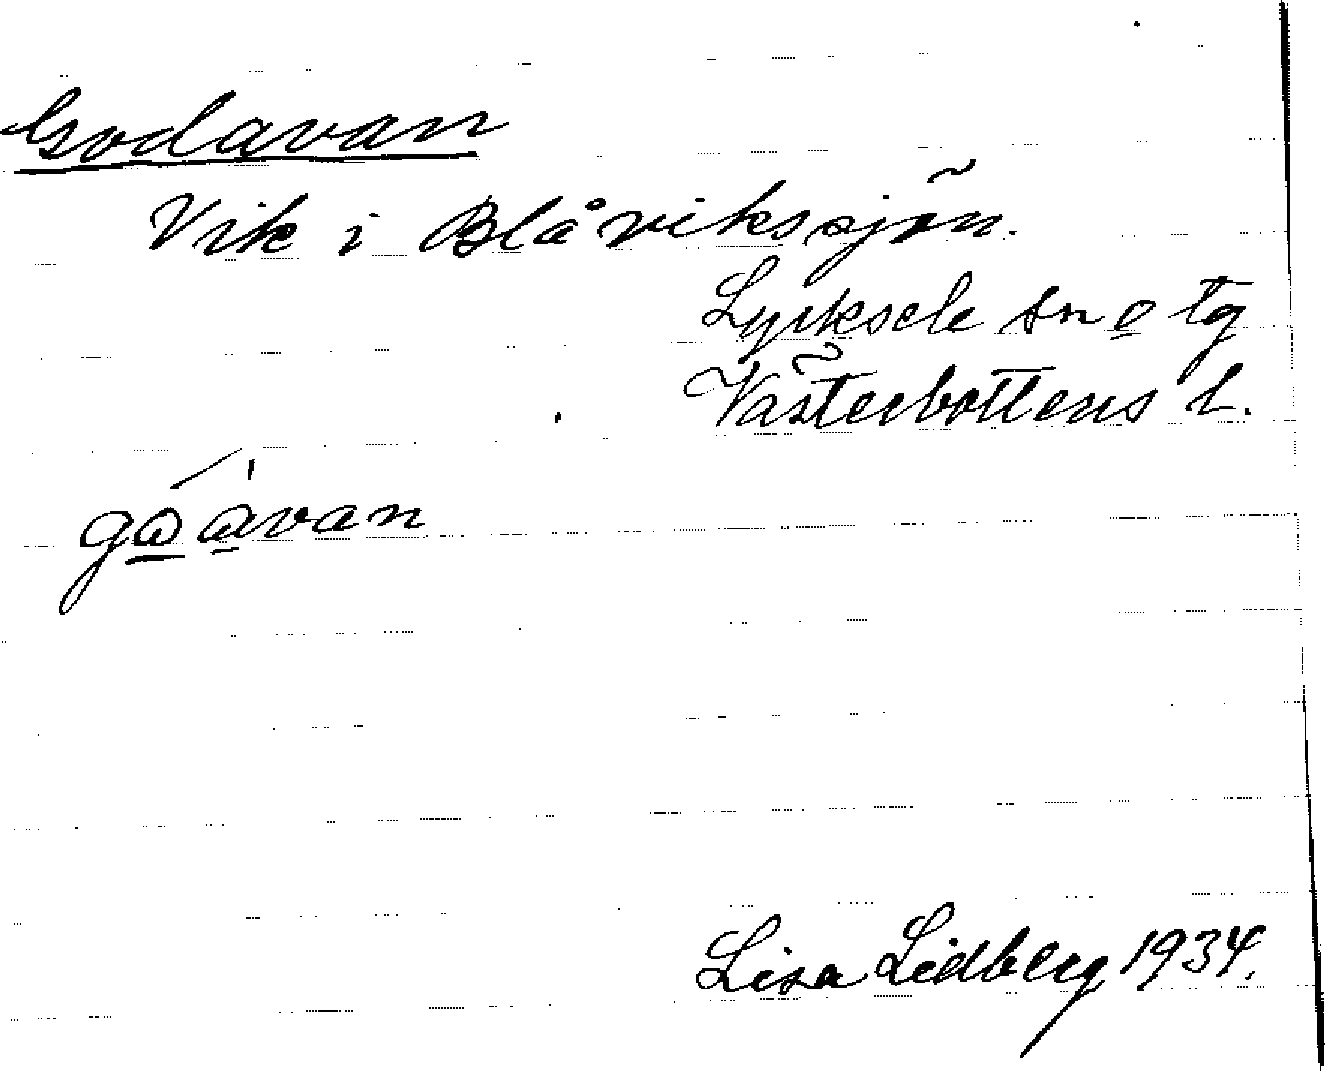 Godavan
Vik i Blåvikssjön.
Lycksele sn o tg
Västerbottens l.
gọ̄ ávan
Lisa Lidberg 1934.